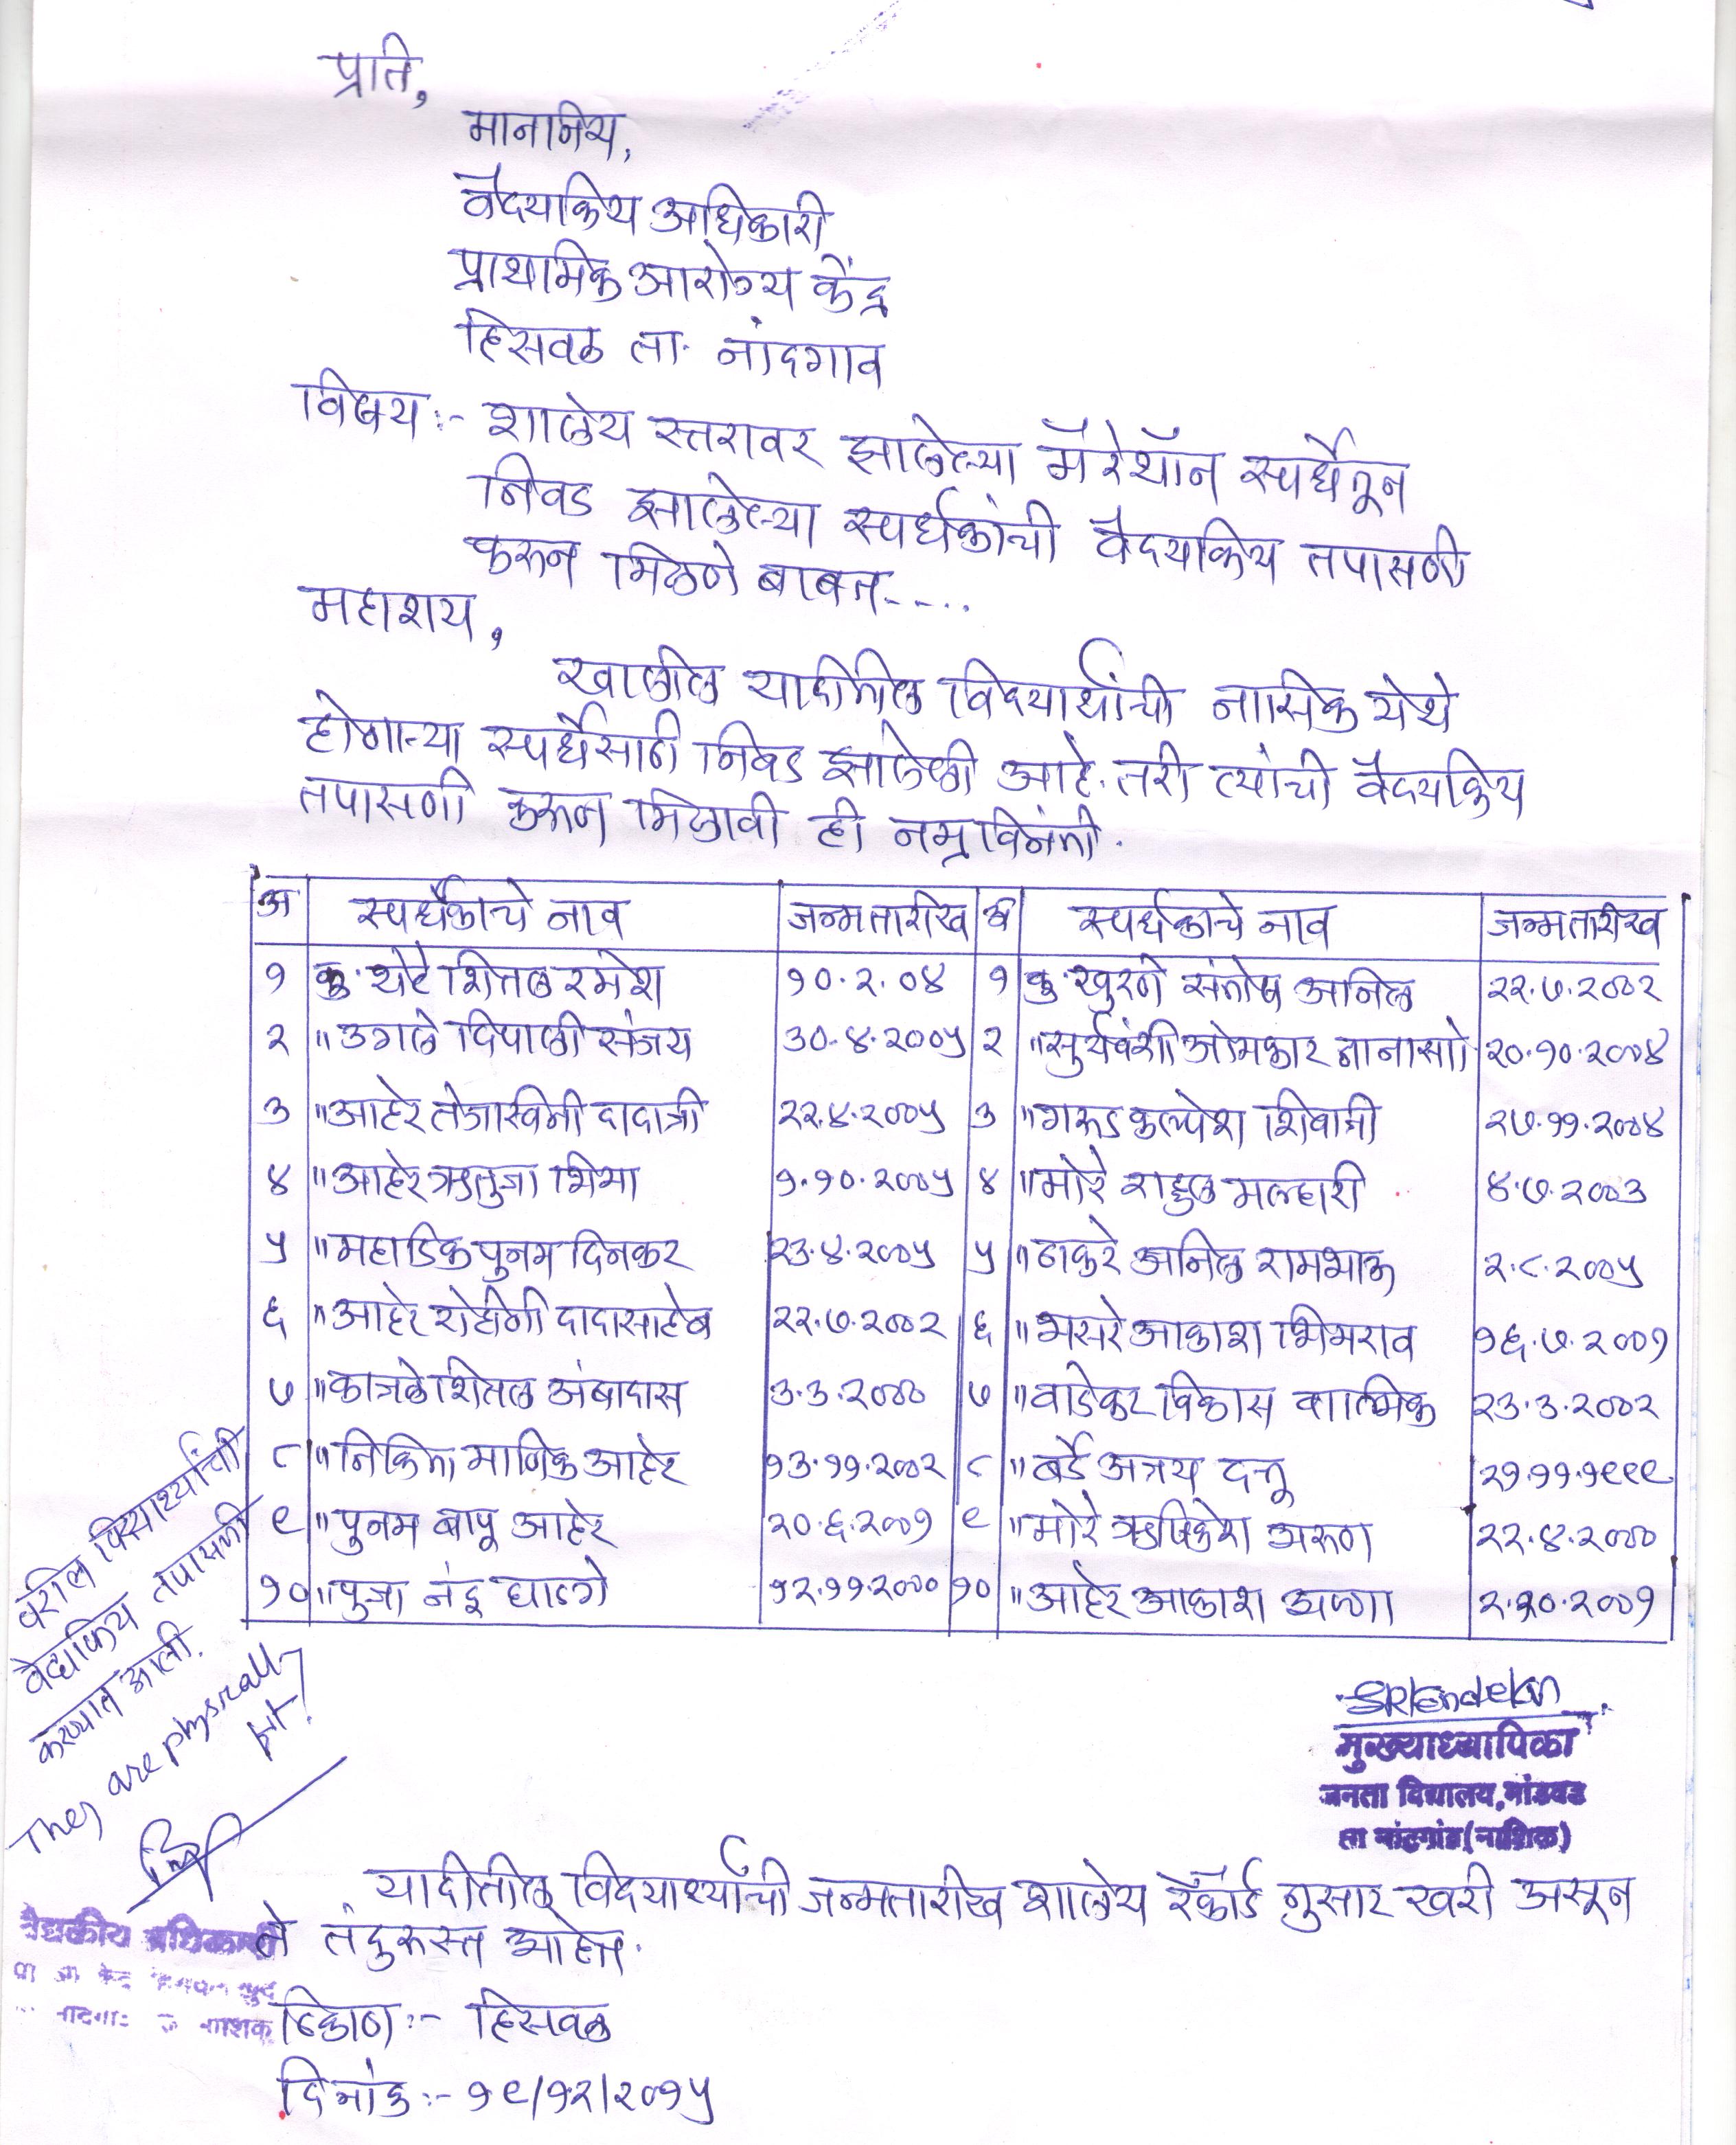 प्रति,
माननिय,
वैदयकिय अधिकारी
प्राथमिक आरोग्य केंद्र
हिसवळ ता. नांदगाव
विषय :- शालेय स्तरावर झालेल्या मॅरेथॉन स्पर्धेतून
निवड झालेल्या स्पर्धकांची वैदयकिय तपासणी
करून मिळणे बाबत-....
महाशय,
खालील यादीतील विदयार्थांची नासिक येथे
होणाऱ्या स्पर्धेसाठी निवड झालेली आहे. तरी त्यांची वैदयकिय
तपासणी करून मिळावी ही नम्र विनंती.
अ स्पर्धकाचे नाव जन्मतारीख अ स्पर्धकाचे नाव जन्मतारीख
१ कु. थेटे शितल रमेश १०.२.०४ १ कु. खुरणे संतोष अनिल २२.७.२००२
२ " उगले दिपाली संजय ३०.४.२००५ २ " सुर्यवंशी ओमकार नानासो २०.१०.२००४
३ " आहेर तेजस्विनी दादाजी २२.४.२००५ ३ " गरुड कल्पेश शिवाजी २७.११.२००४
४ " आहेर ऋतुजा भिमा १.१०.२००५ ४ " मोरे राहुल मल्हारी ४.७.२००३
५ " महाडिक पुनम दिनकर २३.४.२००५ ५ " ठाकरे अनिल रामभाऊ २.८.२००५
६ " आहेर रोहीणी दादासाहेब २२.७.२००२ ६ " भसरे आकाश भिमराव १६.७.२००१
७ " कात्रले शितल अंबादास ३.३.२००० ७ " वाडेकर विकास वाल्मिक २३.३.२००२
८ " निकिता माणिक आहेर १३.११.२००२ ८ " बर्डे अजय दत्तू २१.११.१९९९
९ " पुनम बापू आहेर २०.६.२००१ ९ " मोरे ऋषिकेश अरुण २२.४.२०००
१० " पुजा नंदू घाडगे १२.११.२००० १० " आहेर आकाश अण्णा २.१०.२००१
वरील विद्यार्थ्यांची
वैद्यकिय तपासणी
करण्यात आली.
They are physically
fit!
मुख्याध्यापिका
जनता विद्यालय, मांडवड
ता नांदगांव (नाशिक)
यादीतील विदयार्थ्यांची जन्मतारीख शालेय रेकॉर्ड नुसार खरी असून
ते तंदुरुस्त आहेत.
वैद्यकीय अधिकारी
ठिकाण :- हिसवळ
दिनांक :- १९/१२/२०१५